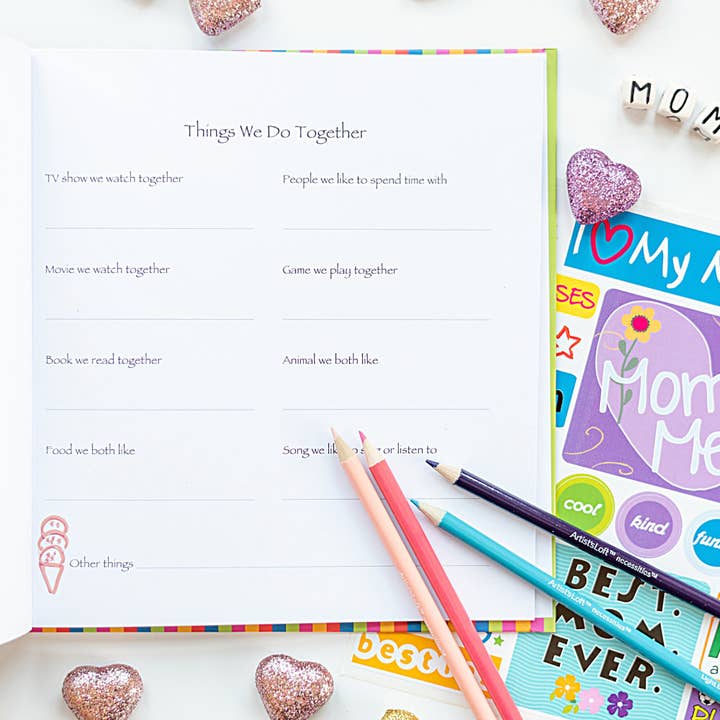 Things We Do Together
TV show we watch together
People we like to spend time with
Movie we watch together
Game we play together
Book we read together
Animal we both like
Food we both like
Song we like to sing or listen to
Other things
MOM
I My
SES
Mom
Me
cool
kind
fun
Artist'sLoft™ necessities™
Artist'sLoft™ necessities™
Light
BEST.
MOM.
EVER.
bestie